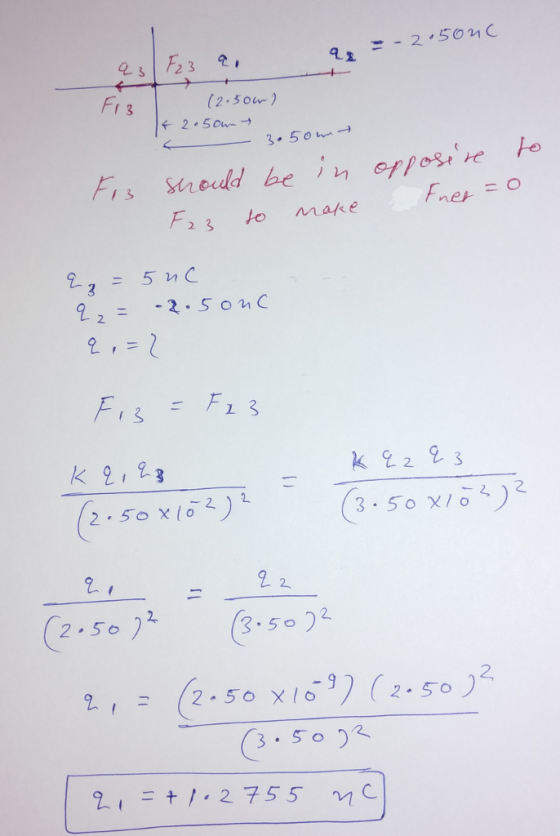 q3 F23 q1 q2 = -2.50nC
F13 (2.50cm)
← 2.50cm →
← 3.50cm →
F13 should be in opposite to
F23 to make Fnet = 0
q3 = 5nC
q2 = -2.50nC
q1 = ?
F13 = F23
K q1q3 / (2.50×10^-2)^2 = K q2 q3 / (3.50×10^-2)^2
q1 / (2.50)^2 = q2 / (3.50)^2
q1 = (2.50×10^-9)(2.50)^2 / (3.50)^2
q1 = +1.2755 nC